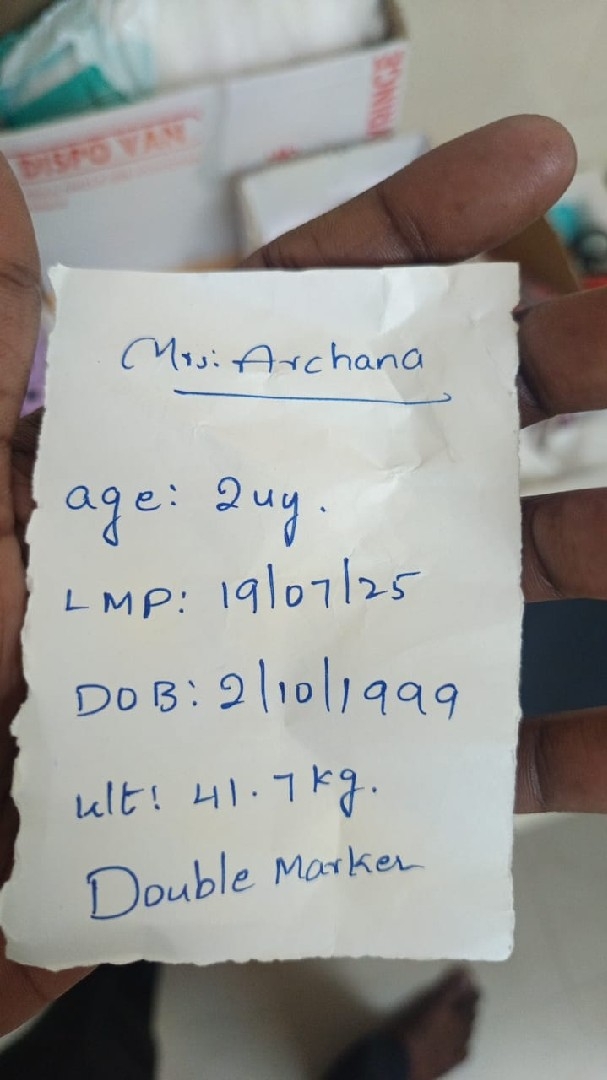 DISPO VAN
Mrs: Archana
age: 24y.
LMP: 19/07/25
DOB: 2/10/1999
Wt: 41.7kg.
Double Marker